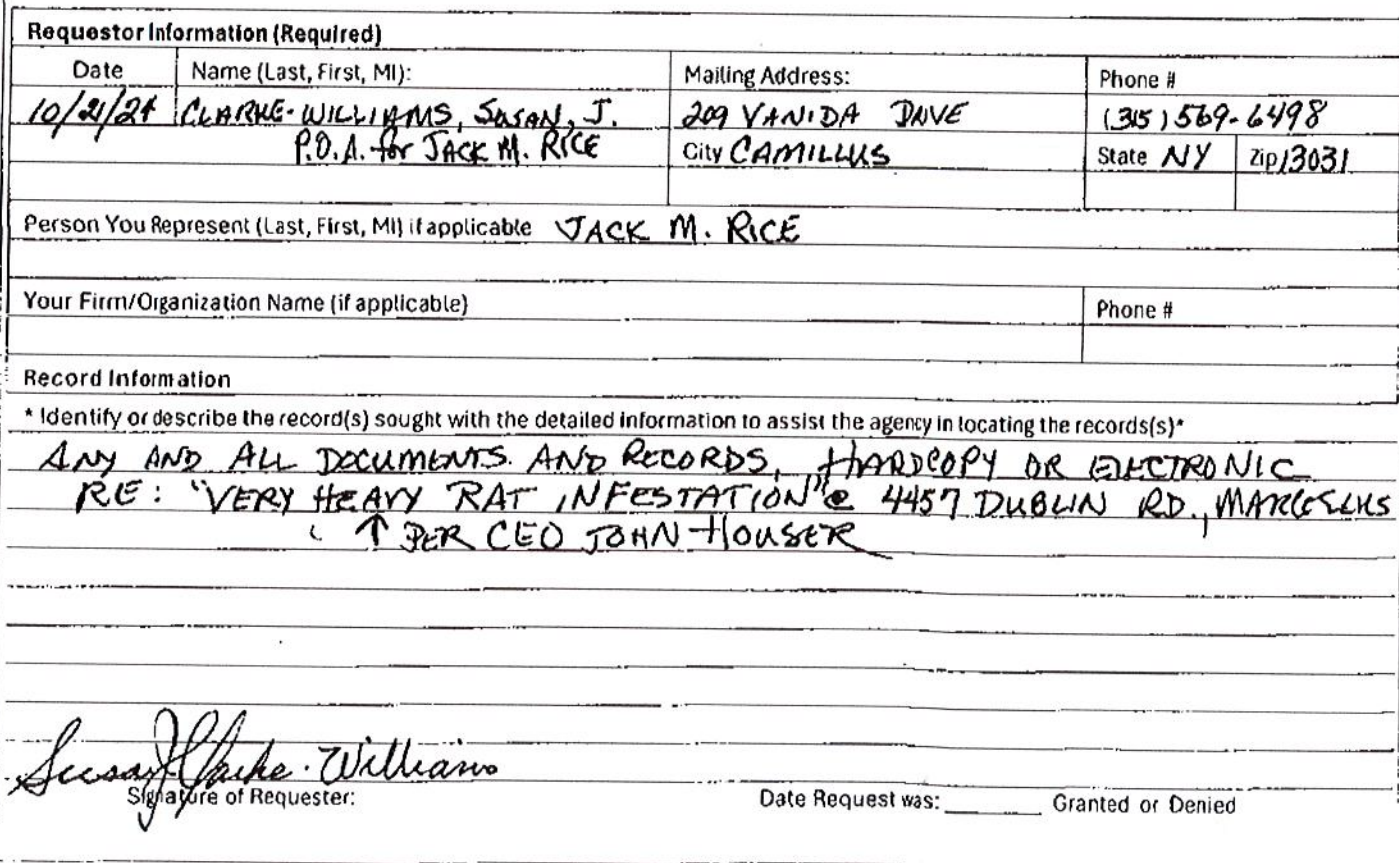 Requestor Information (Required)
Date Name (Last, First, MI): Mailing Address: Phone #
10/21/24 CLARKE-WILLIAMS, SUSAN, J. 209 VANIDA DRIVE (315) 569-6498
P.O.A. for JACK M. RICE City CAMILLUS State NY Zip 13031
Person You Represent (Last, First, MI) if applicable JACK M. RICE
Your Firm/Organization Name (if applicable) Phone #
Record Information
* Identify or describe the record(s) sought with the detailed information to assist the agency in locating the records(s)*
ANY AND ALL DOCUMENTS AND RECORDS, HARDCOPY OR ELECTRONIC
RE: "VERY HEAVY RAT INFESTATION" @ 4457 DUBLIN RD., MARCELLUS
↑ PER CEO JOHN HOUSER
Susan J Clarke-Williams
Signature of Requester: Date Request was: ______ Granted or Denied